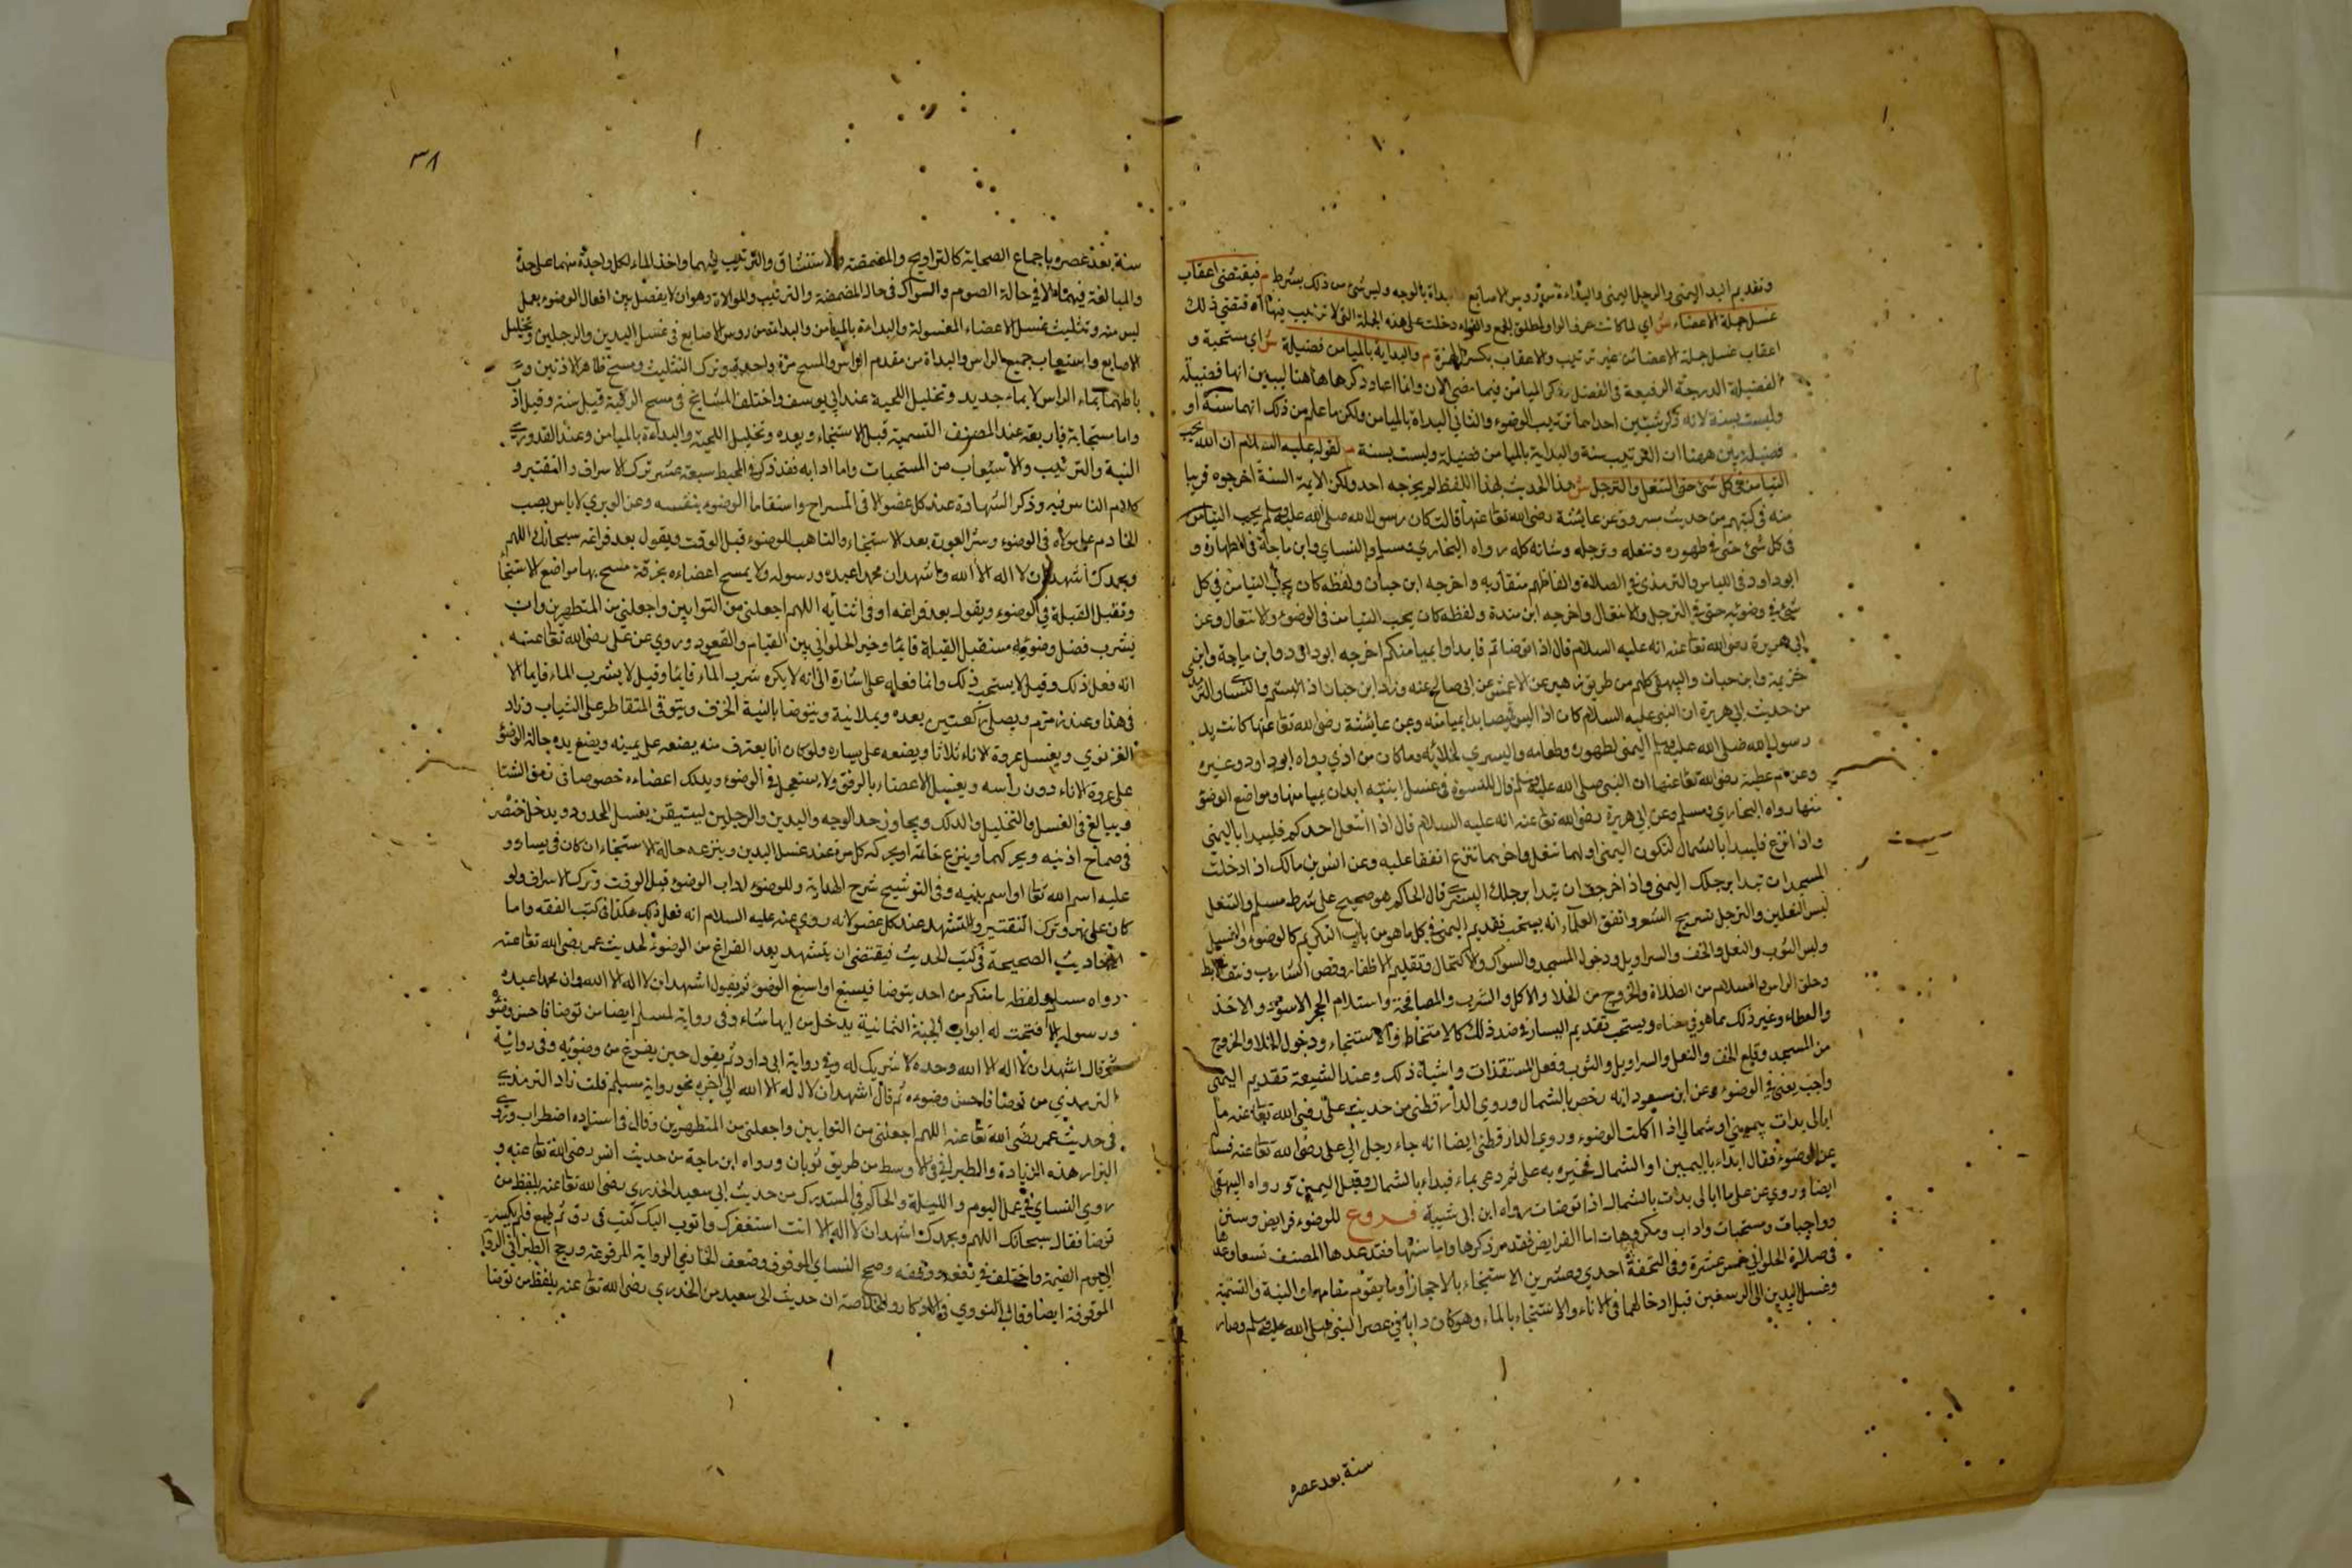 وتقديم اليد اليمني والرجل اليمني والبداءة من رؤس الاصابع بداة بالوجه وليس شئ من ذلك بشرط م فيقتضي اعقاب
غسل جملة الاعضاء ش اي لما كانت حرف الواو لمطلق الجمع والفاء دخلت علي هذه الجملة التي لا ترتيب فيها انه فتقتضي ذلك
اعقاب غسل جملة الاعضا من غير ترتيب والاعقاب بكسر الهمزة م والبداية بالميامن فضيلة ش اي مستحبة و
الفضيلة الدرجة الرفيعة في الفضل ذكر الميامن فيما مضي الان وانما اعاد ذكرها هاهنا ليبين انها فضيلة
وليست بسنة لانه ذكر شيئين احدهما ترتيب الوضوء والثاني البداة بالميامن ولكن ما علم من ذلك انهما سنة او
فضيلة بين ههنا ان الترتيب سنة والبداية بالميامن فضيلة وليست بسنة م لقوله عليه السلام ان الله يحب
التيامن في كل شئ حتي التنعل والترجل ش هذا الحديث بهذا اللفظ لم يخرجه احد ولكن الايمة الستة اخرجوه قريبا
منه في كتبهم من حديث مسروق عن عايشة رضي الله تعا عنها قالت كان رسول الله صلي الله عليه وسلم يحب التيامن
في كل شئ حتي في طهوره وتنعله وترجله وشانه كله رواه البخاري ومسلم والنساي وابن ماجة في الطهارة و
ابوداود في اللباس والترمذي في الصلاة والفاظهم متقاربة واخرجه ابن حبان ولفظه كان يحب التيامن في كل
شئ في وضوئه حتي في الترجل والانتعال واخرجه ابن مندة ولفظه كان يحب التيامن في الوضوء والانتعال وعن
ابي هريرة رضي الله تعا عنه انه عليه السلام قال اذا توضاتم فابداوا بميامنكم اخرجه ابوداود وابن ماجة وابن
خزيمة وابن حبان والبيهقي كلهم من طريق زهير عن الاعمش عن ابي صالح عنه وزاد ابن حبان اذا لبستم والنساي والترمذي
من حديث ابي هريرة ان النبي عليه السلام كان اذا لبس قميصا بدا بميامنه وعن عايشة رضي الله تعا عنها كانت يد
رسول الله صلي الله عليه وسلم اليمني لطهوره وطعامه واليسري لخلائه وما كان من اذي رواه ابوداود وغيره
وعن ام عطية رضي الله تعا عنها ان النبي صلي الله عليه وسلم قال للنسوة في غسل ابنته ابدان بميامنها ومواضع الوضوء
منها رواه البخاري ومسلم وعن ابي هريرة رضي الله تعا عنه انه عليه السلام قال اذا انتعل احدكم فليبدا باليمني
واذا نزع فليبدا بالشمال لتكون اليمني اولهما تنعل واخرهما تنزع اتفقا عليه وعن انس بن مالك اذا دخلت
المسجد ان تبدا برجلك اليمني واذا خرجت ان تبدا برجلك اليسري قال الحاكم هو صحيح علي شرط مسلم والتنعل
لبس النعلين والترجل تسريح الشعر واتفق العلماء انه يستحب تقديم اليمني في كل ما هو من باب التكريم كالوضوء والغسل
ولبس الثوب والنعل والخف والسراويل ودخول المسجد والسواك والاكتحال وتقليم الاظفار وقص الشارب ونتف الابط
وحلق الراس والسلام من الصلاة والخروج من الخلا والاكل والشرب والمصافحة واستلام الحجر الاسود والاخذ
والعطاء وغير ذلك مما هو في معناه ويستحب تقديم اليسار في ضد ذلك كالامتخاط والاستنجاء ودخول الخلا والخروج
من المسجد وقلع الخف والنعل والسراويل والثوب وفعل المستقذرات واشباه ذلك وعند الشيعة تقديم اليمني
واجب يعني في الوضوء وعن ابن مسعود انه رخص بالشمال وروي الدارقطني من حديث علي رضي الله تعا عنه ما
ابالي بدات بيميني او شمالي اذا اكملت الوضوء وروي الدارقطني ايضا انه جاء رجل الي علي رضي الله تعا عنه فسئله
عن الوضوء فقال ابداء باليمين او الشمال فخيره به علي ثم دعي بماء فبداء بالشمال وقبل اليمين رواه البيهقي
ايضا وروي عن علي ما ابالي بدات بالشمال اذا توضات رواه ابن ابي شيبة فروع للوضوء فرايض وسنن
وواجبات ومستحبات واداب ومكروهات اما الفرايض فقد مر ذكرها واما سنتها فقد عدها المصنف تسعا وعدها
في صلاة الحلواني خمس عشرة وفي التحفة احدي وعشرين الاستنجاء بالاحجار وما يقوم مقامها والنية والتسمية
وغسل اليدين الي الرسغين قبل ادخالهما في الاناء والاستنجاء بالماء وهو كان دابا في عصر النبي صلي الله عليه وسلم وصار
سنة بعد عصره
٣٨
سنة بعد عصره باجماع الصحابة كالتراويح والمضمضة والاستنشاق والترتيب فيهما واخذ الماء لكل واحدة منهما علي حدة
والمبالغة فيهما الا في حالة الصوم والسواك في حال المضمضة والترتيب والموالاة وهو ان لا يفصل بين افعال الوضوء بعمل
ليس منه وتثليث غسل الاعضاء المغسولة والبداءة بالميامن والبداءة من روس الاصابع في غسل اليدين والرجلين وتخليل
الاصابع واستيعاب جميع الراس والبداة من مقدم الراس والمسح مرة واحدة وترك التثليث ومسح ظاهر الاذنين و
باطنهما بماء الراس لا بماء جديد وتخليل اللحية عند ابي يوسف واختلف المشايخ في مسح الرقبة قيل سنة وقيل ادب
واما مستحباته فاربعة عند المصنف التسمية قبل الاستنجاء وبعده وتخليل اللحية والبداءة بالميامن وعند القدوري
النية والترتيب والاستيعاب من المستحبات واما ادابه فقد ذكر في المحيط سبعة عشر ترك الاسراف والتقتير و
كلام الناس فيه وذكر الشهادة عند كل عضو الا في المسراح واستقاما الوضوء بنفسه وعن الوبري لا باس بصب
الخادم علي مولاه في الوضوء وستر العورة بعد الاستنجاء والتاهب للوضوء قبل الوقت ويقول بعد فراغه سبحانك اللهم
وبحمدك اشهد ان لا اله الا الله واشهد ان محمدا عبده ورسوله ولا يمسح اعضاءه بخرقة مسح بها مواضع الاستنجا
وتقبل القبلة في الوضوء ويقول بعد فراغه او في اثنائه اللهم اجعلني من التوابين واجعلني من المتطهرين وان
يشرب فضل وضوئه مستقبل القبلة قايما وخير الحلواني بين القيام والقعود وروي عن علي رضي الله تعا عنه
انه فعل ذلك وقيل لا يستحب ذلك وانما فعله علي اشارة الي انه لا يكره شرب الماء قايما وقيل لا يشرب الماء قايما الا
في هذا وعند زمزم ويصلي ركعتين بعده ويملا نية ويتوضا بانية الخزف ويتوقي المتقاطر علي الثياب وزاد
الغزنوي ويغسل عروة الاناء ثلاثا ويضعه علي يساره ولو كان انا يعترف منه يضعه علي يمينه ويضع يده حالة الوضوء
علي عروة الاناء دون راسه ويغسل الاعضاء بالرفق ولا يستعجل في الوضوء ويدلك اعضاءه خصوصا في زمن الشتا
ويبالغ في الغسل والتخليل والدلك ويجاوز حد الوجه واليدين والرجلين ليتيقن بغسل الحدود ويدخل خنصره
في صماخ اذنيه ويحركهما وينزع خاتمه او يحركه كل مرة عند غسل اليدين وينزعه حالة الاستنجاء ان كان في يساره و
عليه اسم الله تعا او اسم نبيه وفي التوشيح شرح الهداية وللوضوء اداب الوضوء قبل الوقت وترك الاسراف ولو
كان علي نهر وترك التقتير والتشهد عند كل عضو لانه روي عنه عليه السلام انه فعل ذلك هكذا في كتب الفقه واما
الاحاديث الصحيحة في كتب الحديث فيقتضي ان يتشهد بعد الفراغ من الوضوء لحديث عمر رضي الله تعا عنه
رواه مسلم ولفظه ما منكم من احد يتوضا فيسبغ او اسبغ الوضوء ثم يقول اشهد ان لا اله الا الله وان محمدا عبده
ورسوله الا فتحت له ابواب الجنة الثمانية يدخل من ايها شاء وفي رواية لمسلم ايضا من توضا فاحسن وضوءه
ثم قال اشهد ان لا اله الا الله وحده لا شريك له وفي رواية ابي داود ثم يقول حين يفرغ من وضوئه وفي رواية
الترمذي من توضا فاحسن وضوءه ثم قال اشهد ان لا اله الا الله الي اخره نحو رواية مسلم قلت زاد الترمذي
في حديث عمر رضي الله تعا عنه اللهم اجعلني من التوابين واجعلني من المتطهرين وقال في اسناده اضطراب وروي
البزار هذه الزيادة والطبراني في الاوسط من طريق ثوبان ورواه ابن ماجة من حديث انس رضي الله تعا عنه و
روي النساي في عمل اليوم والليلة والحاكم في المستدرك من حديث ابي سعيد الخدري رضي الله تعا عنه بلفظ من
توضا فقال سبحانك اللهم وبحمدك اشهد ان لا اله الا انت استغفرك واتوب اليك كتب في رق ثم طبع فلم يكسر
الي يوم القيمة واختلف في رفعه ووقفه وصحح النساي الموقوف وضعف الحازمي الرواية المرفوعة ورجح الطبراني الرواية
الموقوفة ايضا وقال النووي في الاذكار والخلاصة ان حديث ابي سعيد من الخدري رضي الله تعا عنه بلفظ من توضا